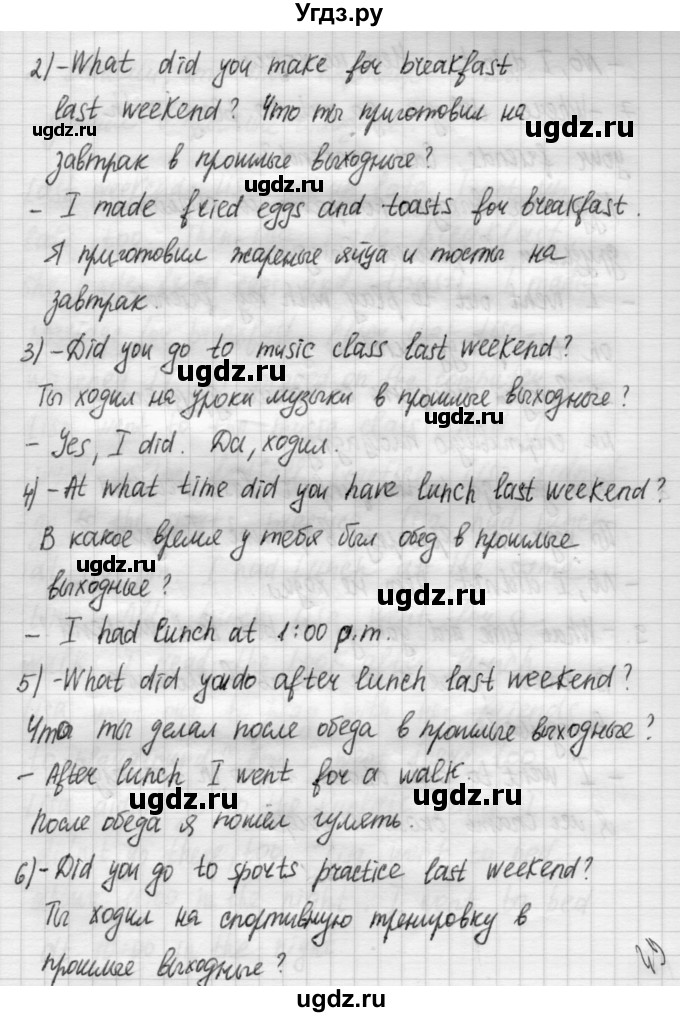 Угдз.ру
2) - What did you make for breakfast
last weekend? Что ты приготовил на
завтрак в прошлые выходные?
- I made fried eggs and toasts for breakfast.
Я приготовил жареные яйца и тосты на
завтрак.
3) - Did you go to music class last weekend?
Ты ходил на уроки музыки в прошлые выходные?
- Yes, I did. Да, ходил.
4) - At what time did you have lunch last weekend?
В какое время у тебя был обед в прошлые
выходные?
- I had lunch at 1:00 p.m.
5) - What did you do after lunch last weekend?
Что ты делал после обеда в прошлые выходные?
- After lunch I went for a walk.
После обеда я пошёл гулять.
6) - Did you go to sports practice last weekend?
Ты ходил на спортивную тренировку в
прошлые выходные?
ugdz.ru
ugdz.ru
ugdz.ru
ugdz.ru
ugdz.ru
ugdz.ru
ugdz.ru
ugdz.ru
ugdz.ru
ugdz.ru
ugdz.ru
ugdz.ru
ugdz.ru